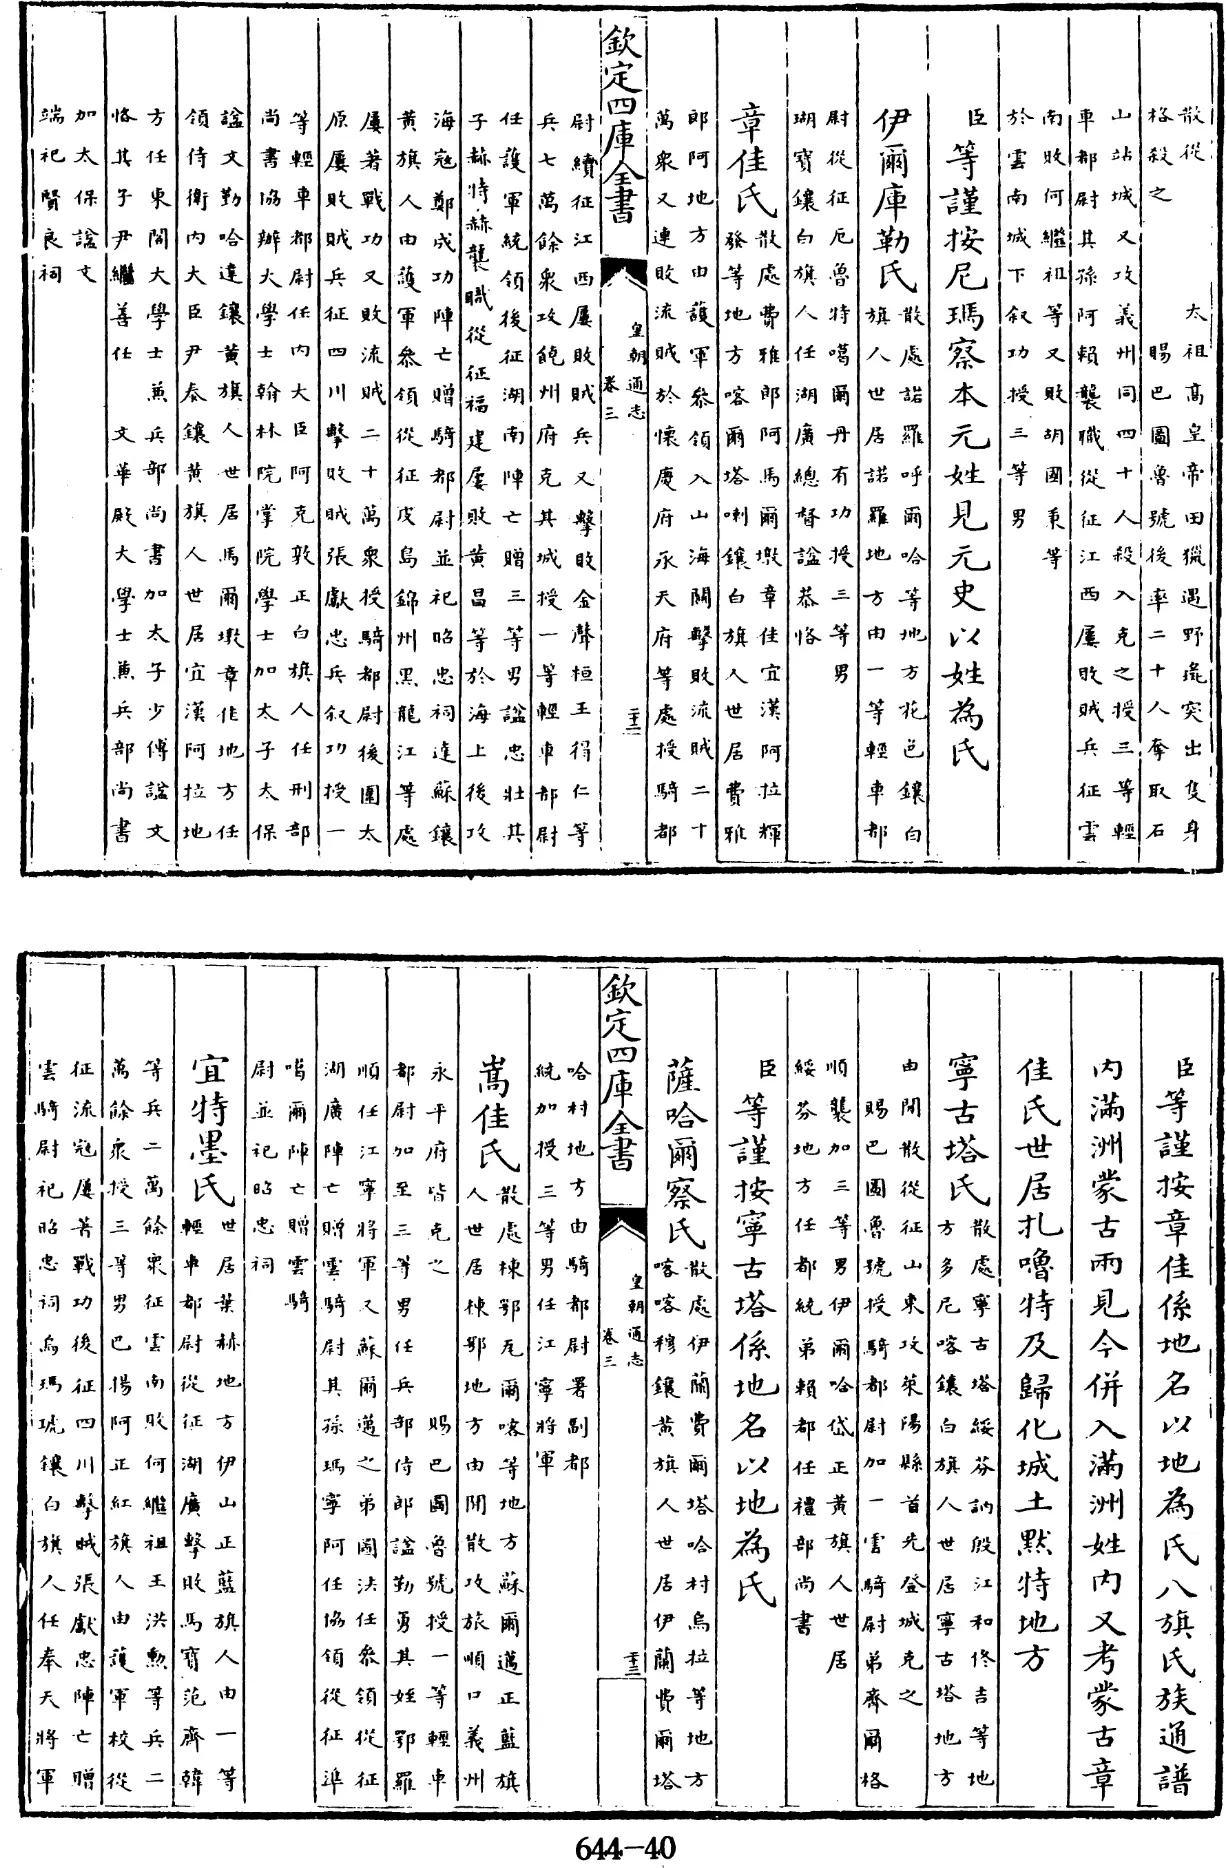 散從　太祖高皇帝田獵遇野彘突出隻身
格殺之　賜巴圖魯號後率二十人奪取石
山站城又攻義州同四十人殺入克之授三等輕
車都尉其孫阿賴襲職從征江西屢敗賊兵征雲
南敗何繼祖等又敗胡國秉等
於雲南城下叙功授三等男
臣等謹按尼瑪察本元姓見元史以姓為氏
伊爾庫勒氏
散處諾羅呼爾哈等地方花色鑲白
旗人世居諾羅地方由一等輕車都
尉從征厄魯特噶爾丹有功授三等男
瑚寶鑲白旗人任湖廣總督諡恭恪
章佳氏
散處費雅郎阿馬爾墩章佳宜漢阿拉輝
發等地方喀爾塔喇鑲白旗人世居費雅
郎阿地方由護軍參領入山海關擊敗流賊二十
萬衆又連敗流賊於懷慶府永天府等處授騎都
欽定四庫全書
皇朝通志
卷三
二十二
尉續征江西屢敗賊兵又擊敗金聲桓王得仁等
兵七萬餘衆攻饒州府克其城授一等輕車都尉
任護軍統領後征湖南陣亡贈三等男諡忠壯其
子赫特赫襲職從征福建屢敗黄昌等於海上後攻
海寇鄭成功陣亡贈騎都尉並祀昭忠祠達蘇鑲
黄旗人由護軍參領從征皮島錦州黑龍江等處
屢著戰功又敗流賊二十萬衆授騎都尉後圍太
原屢敗賊兵征四川擊敗賊張獻忠兵叙功授一
等輕車都尉任内大臣阿克敦正白旗人任刑部
尚書協辦大學士翰林院掌院學士加太子太保
諡文勤哈達鑲黄旗人世居馬爾墩章佳地方任
領侍衛内大臣尹泰鑲黄旗人世居宜漢阿拉地
方任東閣大學士兼兵部尚書加太子少傅諡文
恪其子尹繼善任　文華殿大學士兼兵部尚書
加太保諡文
端祀賢良祠
臣等謹按章佳係地名以地為氏八旗氏族通譜
内滿洲蒙古兩見今併入滿洲姓内又考蒙古章
佳氏世居扎嚕特及歸化城土默特地方
寧古塔氏
散處寧古塔綏芬訥殷江和佟吉等地
方多尼喀鑲白旗人世居寧古塔地方
由閒散從征山東攻萊陽縣首先登城克之
賜巴圖魯號授騎都尉加一雲騎尉弟齊爾格
順襲加三等男伊爾哈岱正黄旗人世居
綏芬地方任都統弟賴都任禮部尚書
臣等謹按寧古塔係地名以地為氏
薩哈爾察氏
散處伊蘭費爾塔哈村烏拉等地方
喀喀穆鑲黄旗人世居伊蘭費爾塔
欽定四庫全書
皇朝通志
卷三
二十三
哈村地方由騎都尉署副都
統加授三等男任江寧將軍
嵩佳氏
散處棟鄂瓦爾喀等地方蘇爾邁正藍旗
人世居棟鄂地方由閒散攻旅順口義州
永平府皆克之　賜巴圖魯號授一等輕車
都尉加至三等男任兵部侍郎諡勤勇其姪鄂羅
順任江寧將軍又蘇爾邁之弟圖法任參領從征
湖廣陣亡贈雲騎尉其孫瑪寧阿任協領從征準
噶爾陣亡贈雲騎
尉並祀昭忠祠
宜特墨氏
世居葉赫地方伊山正藍旗人由一等
輕車都尉從征湖廣擊敗馬寶范齊韓
等兵二萬餘衆征雲南敗何繼祖王洪勲等兵二
萬餘衆授三等男巴揚阿正紅旗人由護軍校從
征流寇屢著戰功後征四川擊賊張獻忠陣亡贈
雲騎尉祀昭忠祠烏瑪琥鑲白旗人任奉天將軍
644-40